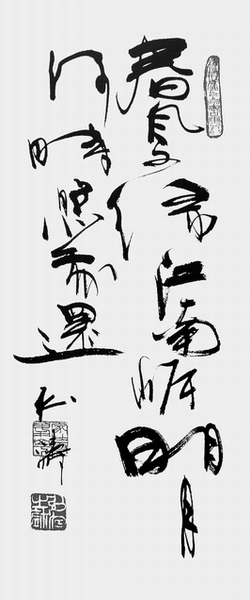 春風又綠江南岸明月
何時照我還